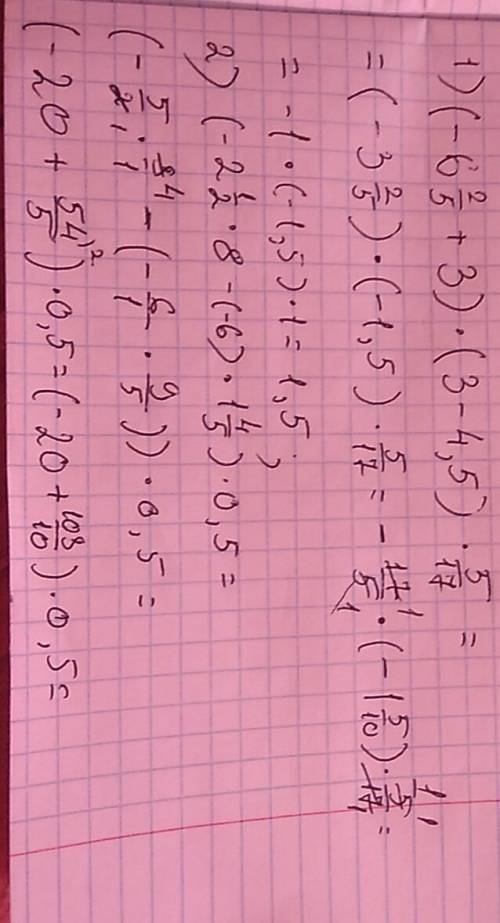 1) (-6 2/5 + 3) · (3 - 4,5) · 5/17 =
= (-3 2/5) · (-1,5) · 5/17 = - 17/5 · (-1 5/10) · 5/17 =
= -1 · (-1,5) · 1 = 1,5 ;
2) (-2 1/2 · 8 - (-6) · 1 4/5) · 0,5 =
(- 5/2 · 8/1 - (- 6/1 · 9/5)) · 0,5 =
(-20 + 54/5) · 0,5 = (-20 + 108/10) · 0,5 =